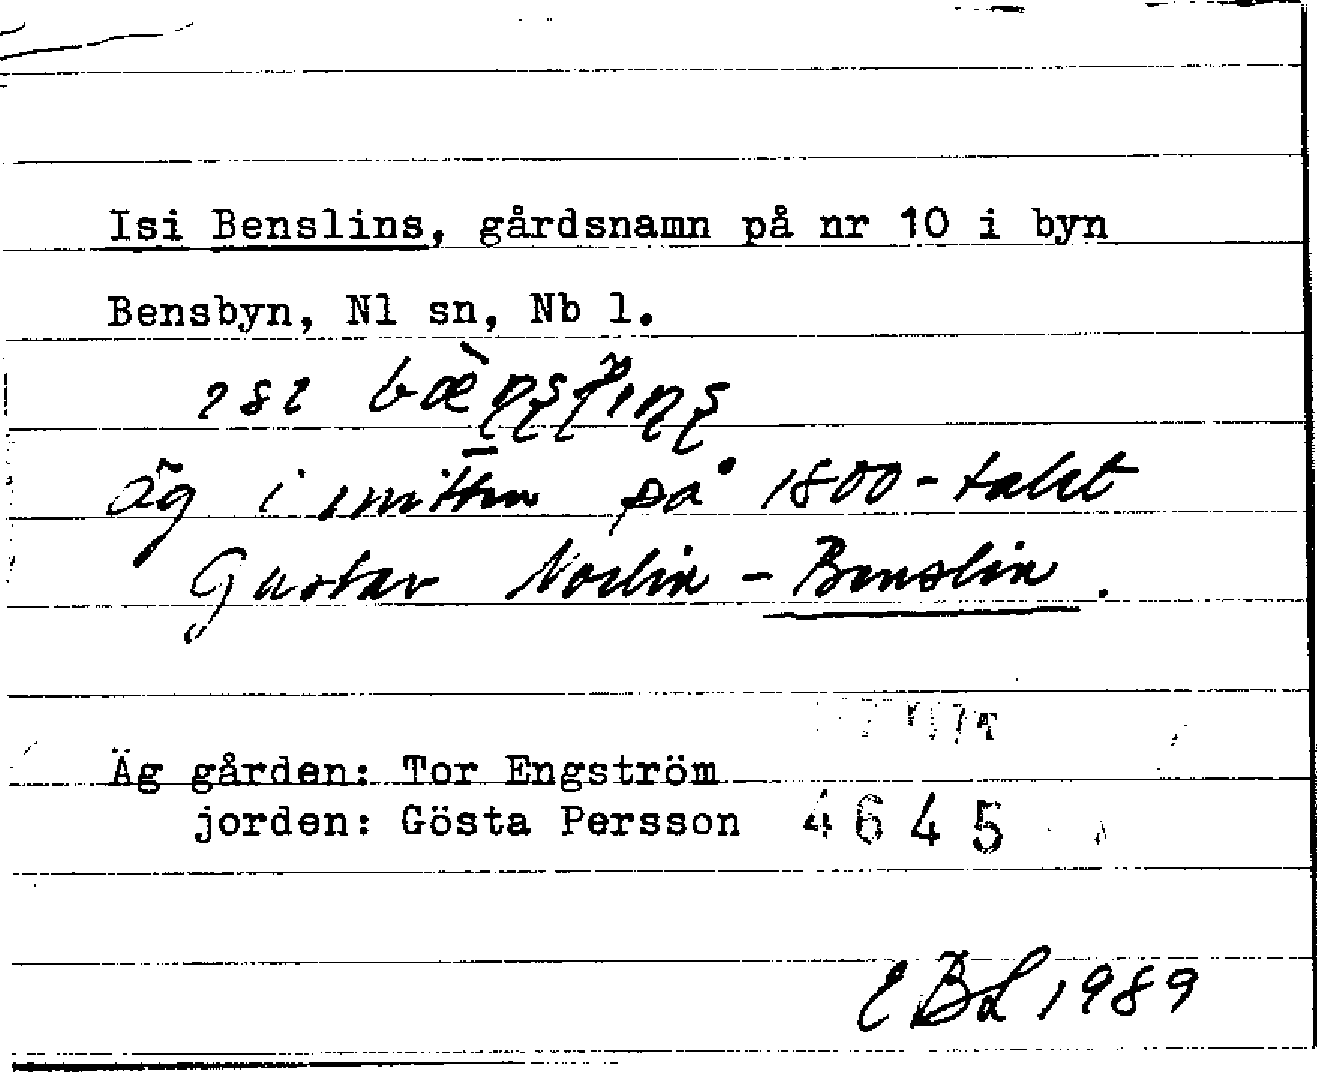 Isi Benslins, gårdsnamn på nr 10 i byn
Bensbyn, Nl sn, Nb l.
Äg i mitten på 1800-talet
Gustav Norlin - Benslin.
Äg gården: Tor Engström
jorden: Gösta Persson 4645
EBL 1989